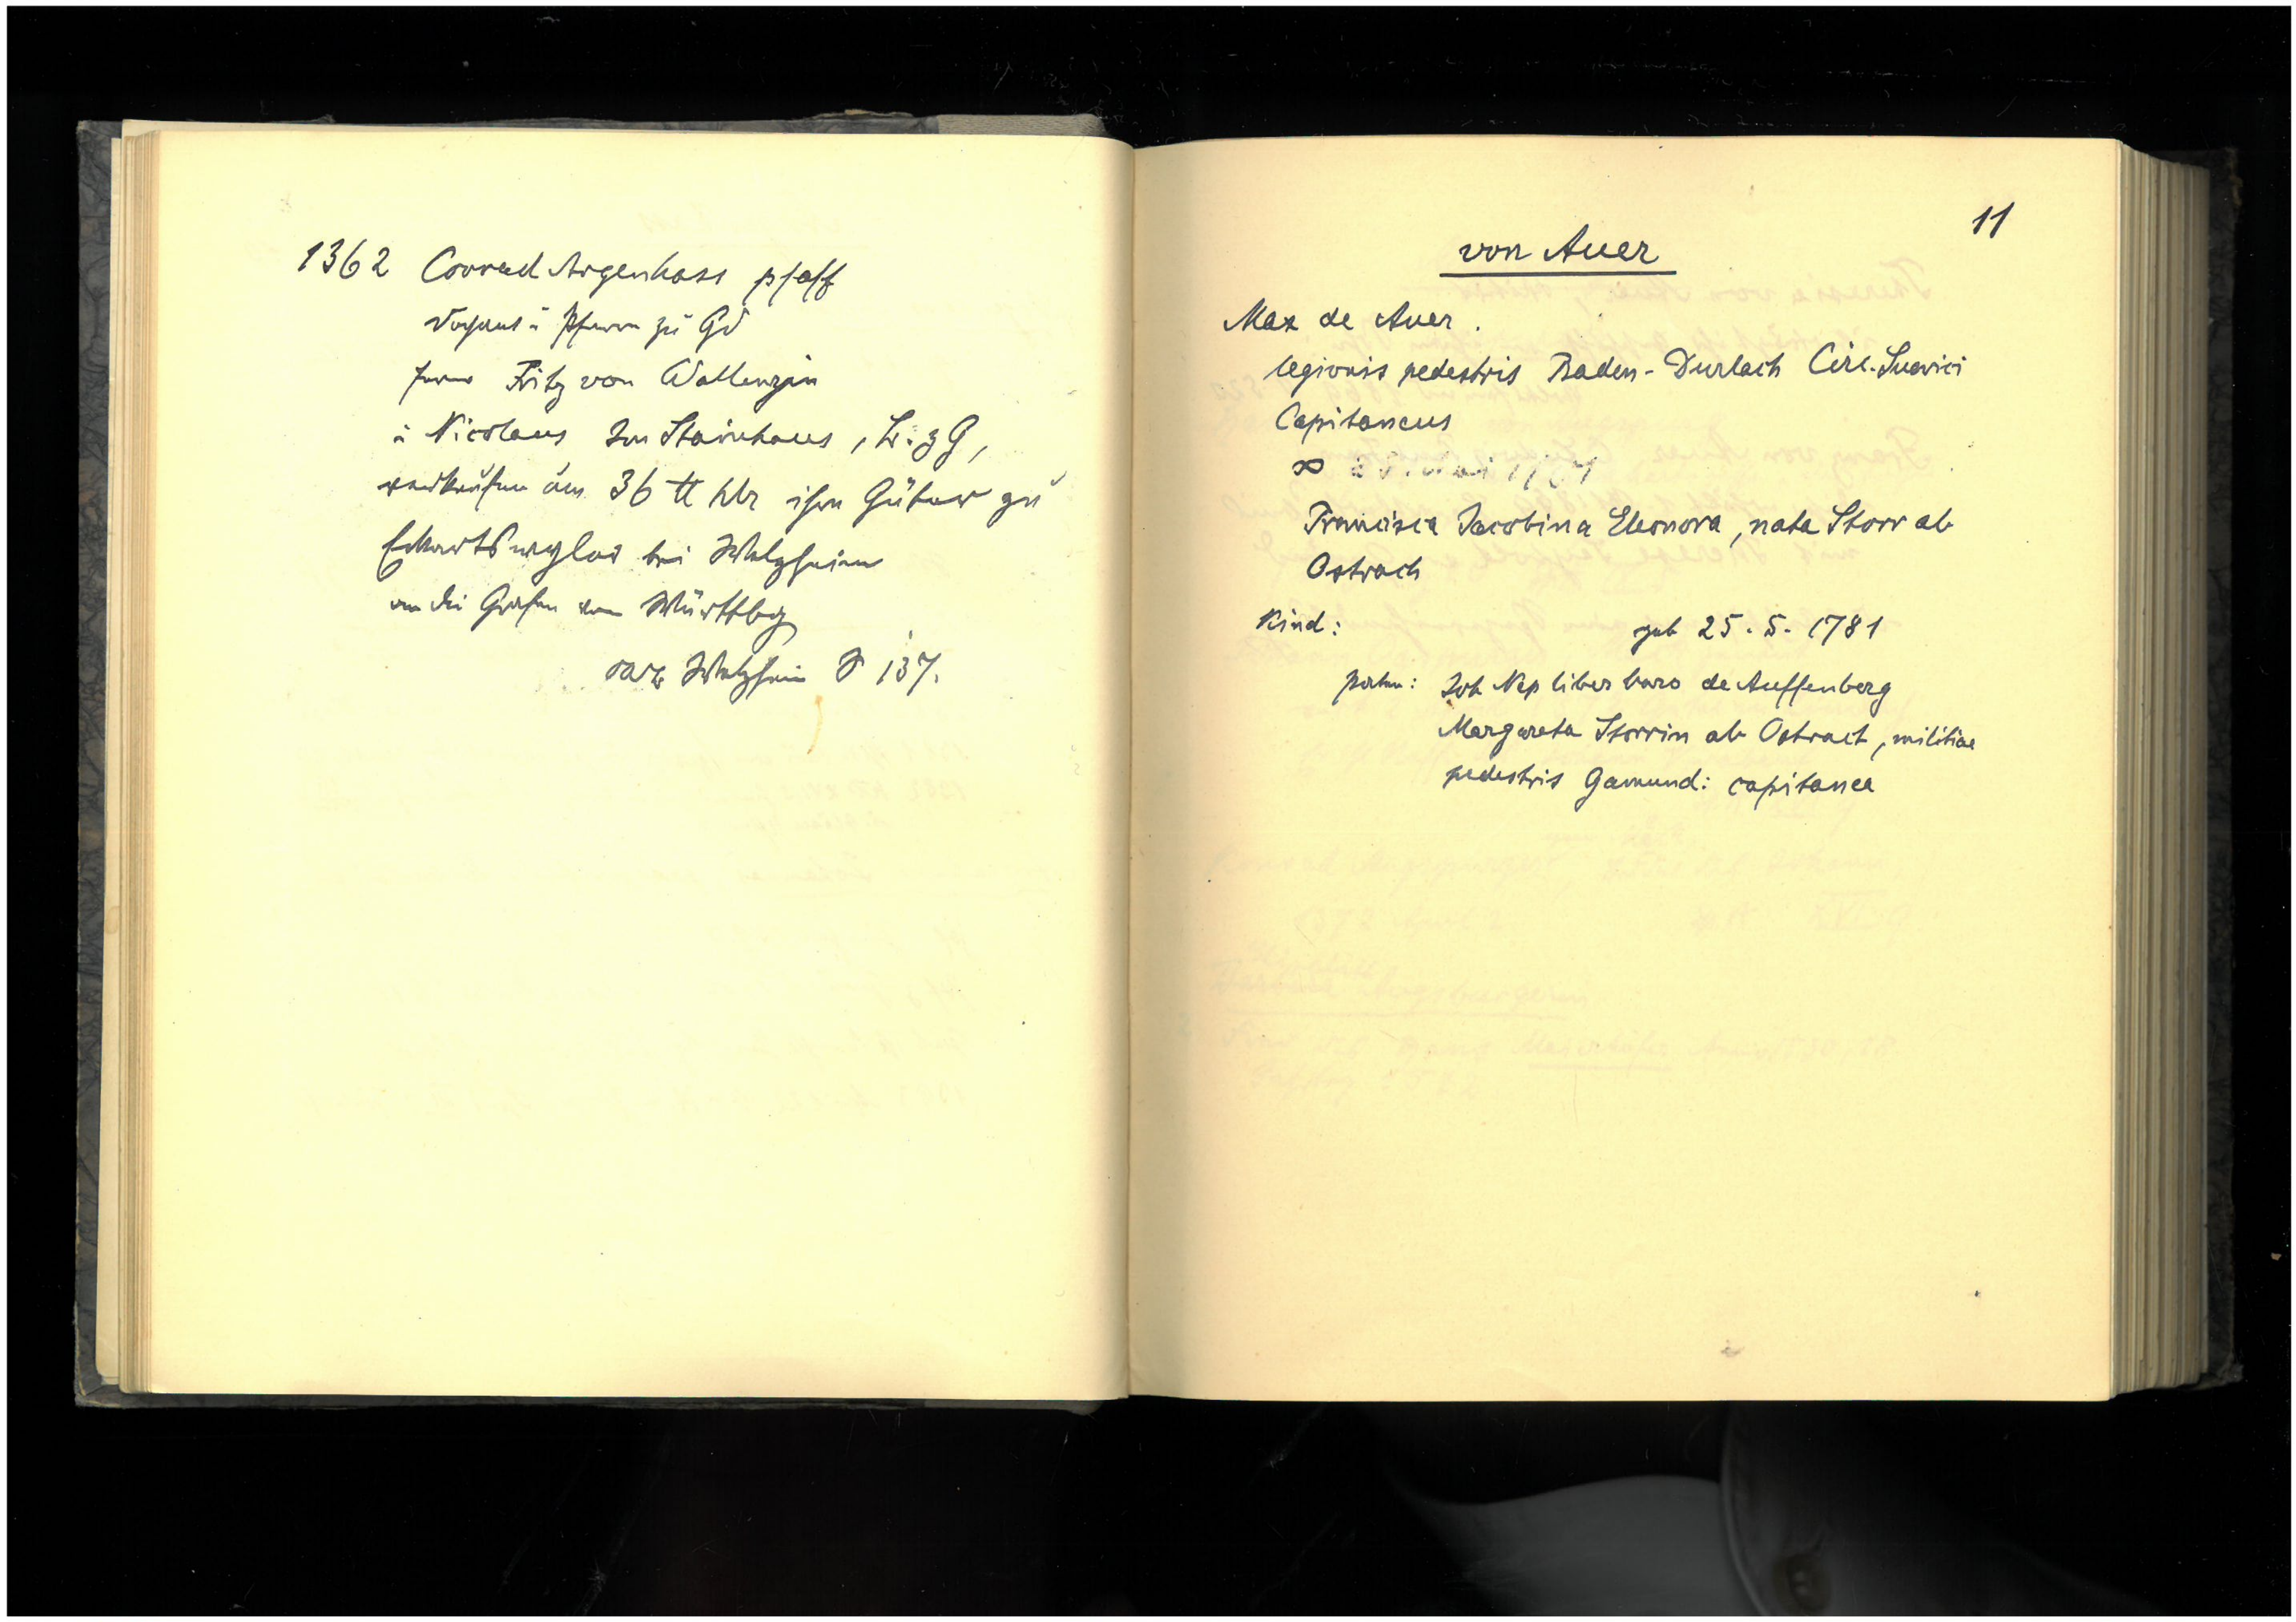 1362 Conrad Argenhass pfaff
Dechant ü Pfarrer zu Gd
ferner Fritz von Wallenzin
ü Nicolaus zum Stainhaus, Lr. z G,
verkaufen um 36 tt hlr ihre Güter zu
Eckartsweyler bei Welzheim
an die Grafen von Württbg
OAB Welzheim S 137.
11
von Auer
Max de Auer.
legionis pedestris Baden-Durlach Circ. Suevici
Capitaneus
∞
Francisca Jacobina Eleonora, nata Storr ab
Ostrach
Kind: geb 25.5.1781
paten: Joh Nep liber baro de Auffenberg
Margareta Storrin ab Ostrach, militiae
pedestris Gamund: capitanea